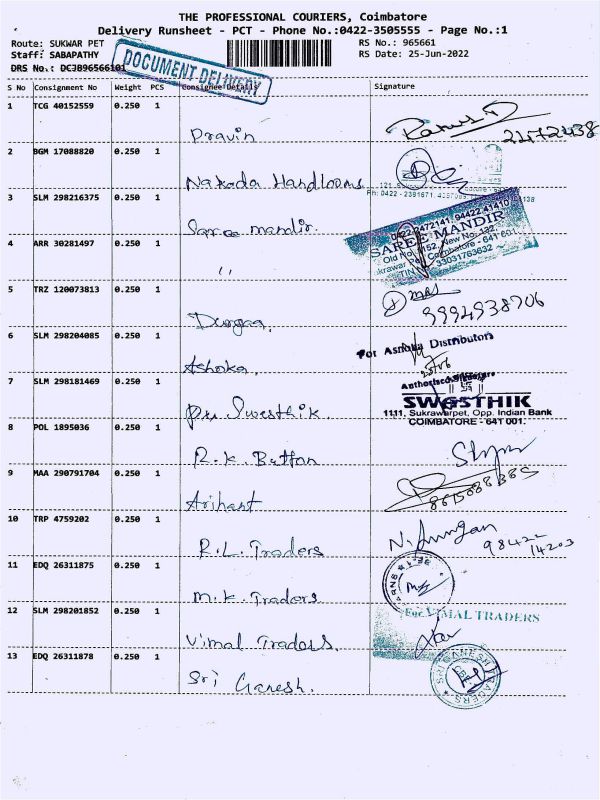 THE PROFESSIONAL COURIERS, Coimbatore
Delivery Runsheet - PCT - Phone No.:0422-3505555 - Page No.:1
Route: SUKWAR PET
RS No.: 965661
Staff: SABAPATHY
RS Date: 25-Jun-2022
DRS No.: DCJB96566101
DOCUMENT DELIVERY
S No Consignment No Weight PCS Consignee Details Signature
1 TCG 40152559 0.250 1
Pravin
2 BGM 17088820 0.250 1
Nakoda Handlooms
3 SLM 298216375 0.250 1
Saree mandir.
0422-2472141, 94422 41410
SAREE MANDIR
Old No. 152, New No. 132,
Sukrawar Pet, Coimbatore - 641 001.
TIN 33031763632
4 ARR 30281497 0.250 1
"
5 TRZ 120073813 0.250 1
Durgaa.
9994938706
6 SLM 298204085 0.250 1
Ashoka.
For Ashoka Distributors
25/06
Authorised Signature
7 SLM 298181469 0.250 1
Swesthik
SWASTHIK
1111, Sukrawarpet, Opp. Indian Bank
COIMBATORE - 641 001.
8 POL 1895036 0.250 1
R.K. Button
9 MAA 290791704 0.250 1
Arihant
10 TRP 4759202 0.250 1
R.L. Traders
98422
14203
11 EDQ 26311875 0.250 1
M.K. Traders
12 SLM 298201852 0.250 1
Vimal Traders.
For VIMAL TRADERS
13 EDQ 26311878 0.250 1
Sri Ganesh.
SRI GANESH TRADERS